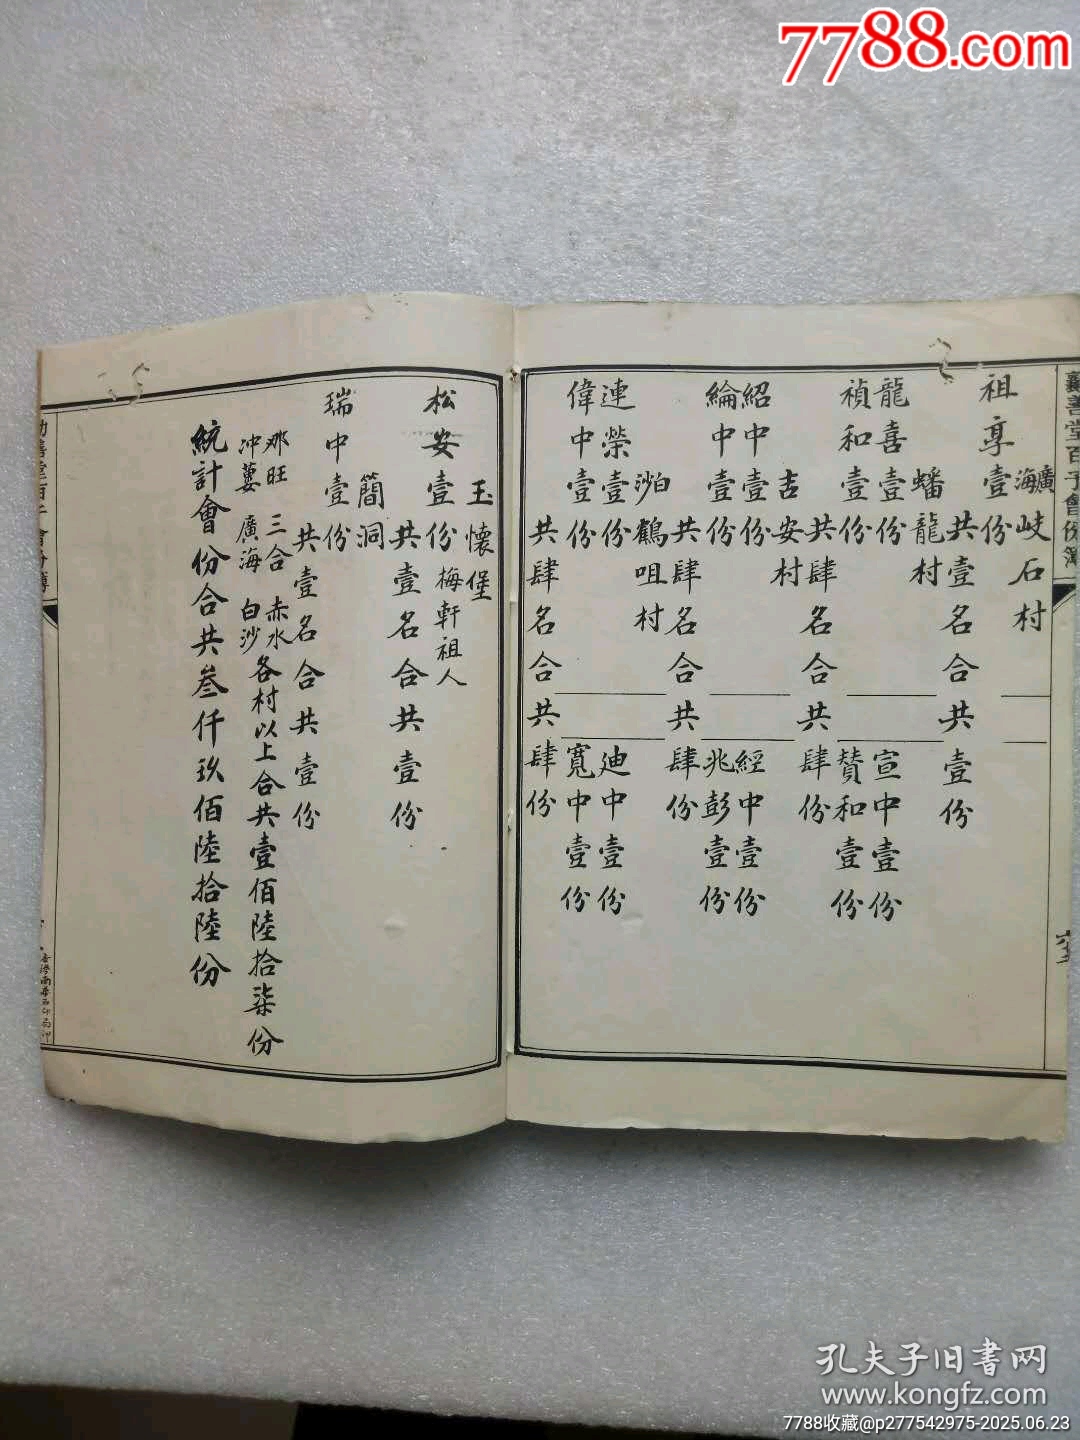 7788.com
勸善堂百子會份簿
廣海 岐石村
祖享壹份
共壹名合共壹份
蟠龍村
龍喜壹份 宣中壹份
禎和壹份 贊和壹份
共肆名合共肆份
吉安村
紹中壹份 經中壹份
綸中壹份 兆彭壹份
共肆名合共肆份
白沙 鶴咀村
連榮壹份 迪中壹份
偉中壹份 寬中壹份
共肆名合共肆份
玉懷堡
松安壹份 梅軒祖人
共壹名合共壹份
簡洞
瑞中壹份
共壹名合共壹份
那旺 三合 赤水
冲蔞 廣海 白沙 各村以上合共壹佰陸拾柒份
統計會份合共叁仟玖佰陸拾陸份
孔夫子旧书网
www.kongfz.com
7788收藏@p277542975-2025.06.23